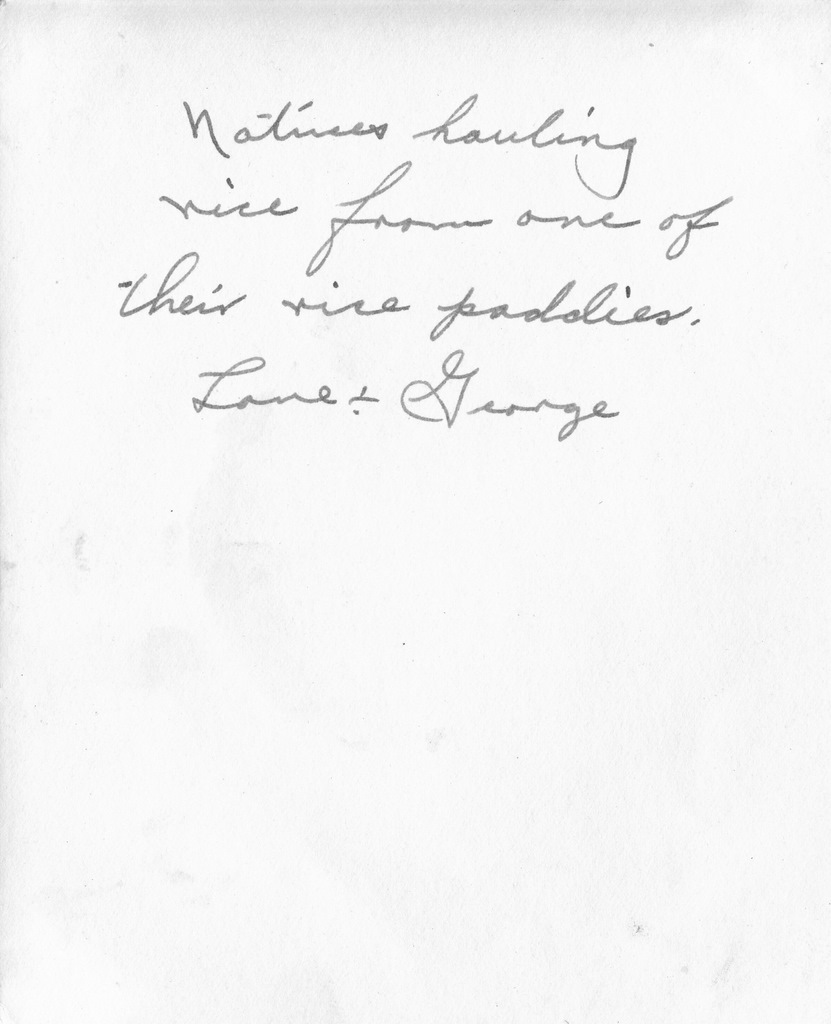 Natives hauling
rice from one of
their rice paddies.
Love + George